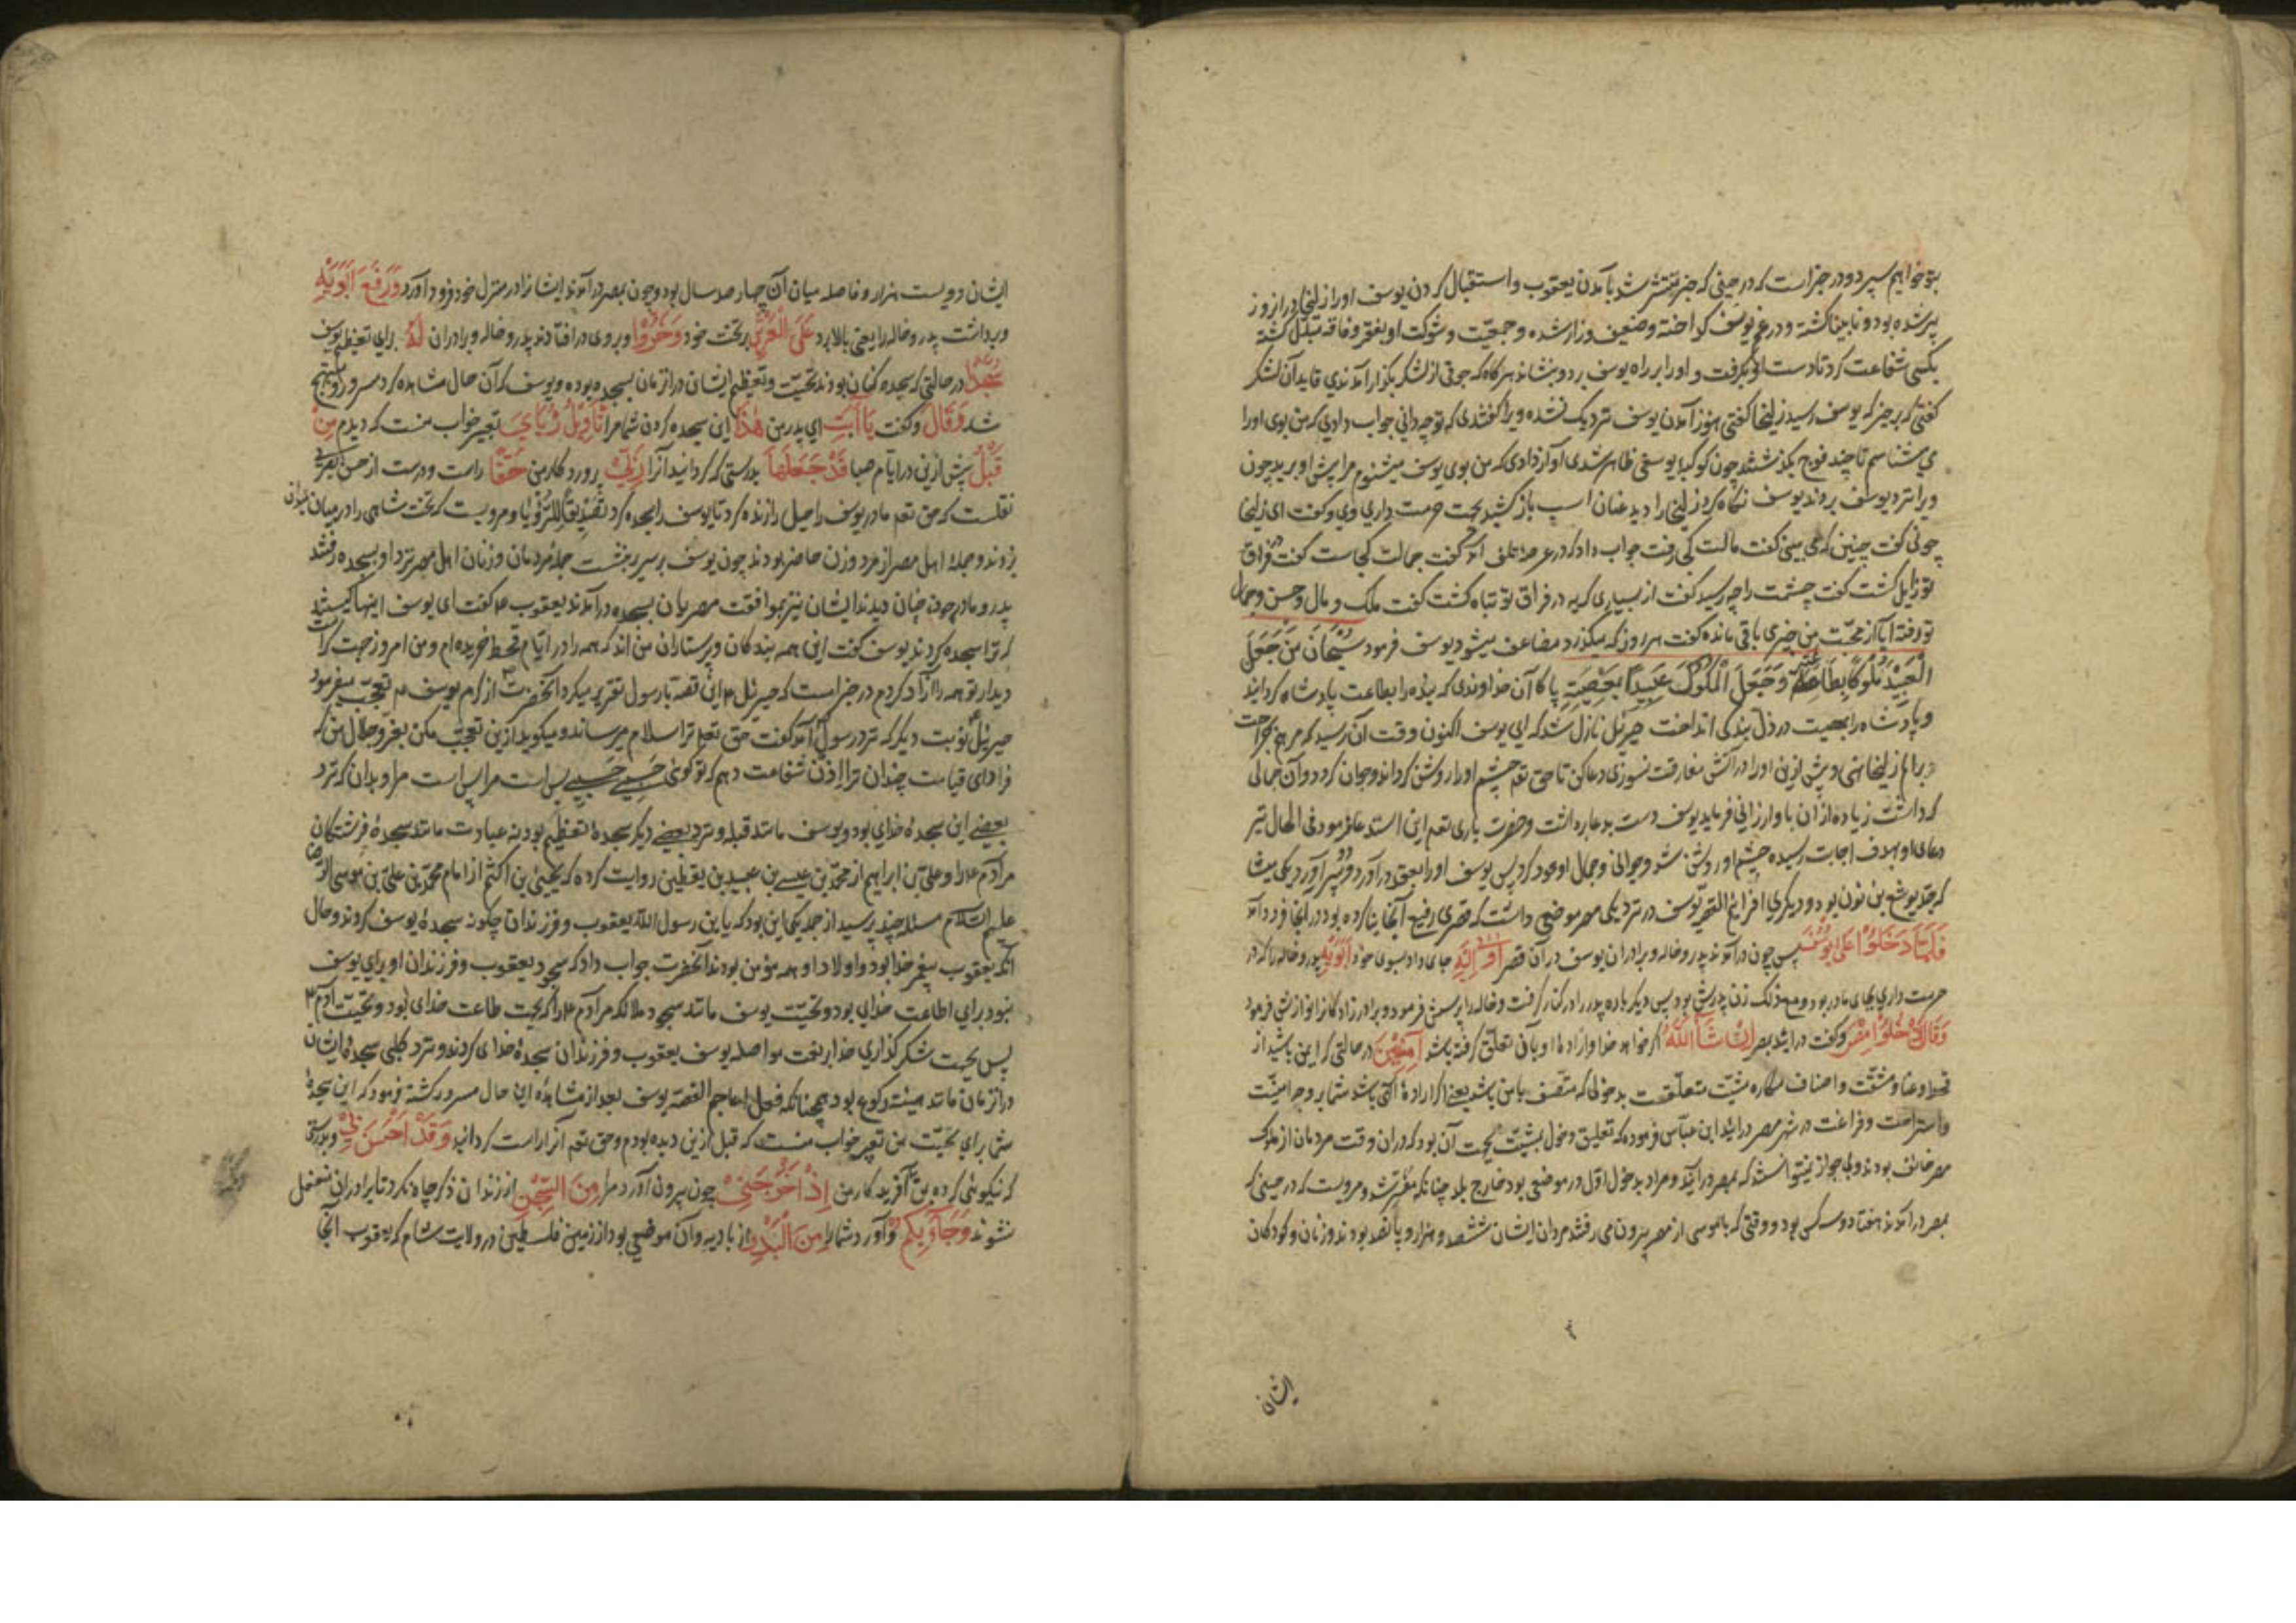 بتو خواهم سپرد و در خبر است که در حینی که خبر منتشر شد بآمدن یعقوب و استقبال کردن یوسف او را زلیخا در آن روز
پیر شده بود و نابینا گشته و در غم یوسف گداخته و ضعیف و زار شده و جمعیت و شوکت او بفقر و فاقه مبدل گشته
بکسی شفاعت کرد تا دست او بگرفت و او را بر راه یوسف برد و بنشاند هر گاه که جوقی از لشکر بگذار آمدندی قاید آن لشکر
گفتی که برخیز که یوسف رسید زلیخا گفتی هنوز آمدن یوسف نزدیک نشده ویرا گفتندی که تو چه دانی جواب دادی که من بوی او را
می شناسم تا چند فوج بگذشتند چون کوکبه یوسفی ظاهر شد وی آواز دادی که من بوی یوسف میشنوم مرا پیش او برید چون
ویرا نزد یوسف بردند یوسف نگاه کرد زلیخا را دید عنان اسب باز کشید بجهت حرمت داری وی و گفت ای زلیخا
چونی گفت چنین که می بینی گفت مالت کی رفت جواب داد که در عرصه تلف آمد گفت جمالت کجاست گفت در فراق
تو زایل گشت گفت چشمت را چه رسید گفت از بسیاری گریه در فراق تو تباه گشت گفت ملک و مال و حسن و جمال
تو رفته آیا از محبت من چیزی باقی مانده گفت هر روز که میگذرد مضاعف میشود یوسف فرمود سُبْحَانَ مَنْ جَعَلَ
الْعَبِیدَ مُلُوکًا بِطَاعَتِهِ وَجَعَلَ الْمُلُوکَ عَبِیدًا بِمَعْصِیَتِهِ پاکا آن خداوندی که بنده را بطاعت پادشاه گرداند
و پادشاه را بمعصیت در ذل بندگی انداخت جبرئیل نازل شد که ای یوسف اکنون وقت آن رسید که مرهم بجراحت
زلیخا نهی و پیش ازین او را در آتش مفارقت نسوزی دعا کن تا حق تعم چشم او را روشن گرداند و جوان گردد و آن جمالی
که داشت زیاده از آن باو ارزانی فرماید یوسف دست بدعا برداشت و حضرت باری تعم این استدعا فرمود فی الحال تیر
دعای او بهدف اجابت رسیده چشم او روشن شد و جوانی و جمال او عود کرد پس یوسف او را بعقد درآورد و دو پسر آورد یکی میشا
که جد یوشع بن نون بود و دیگری افرائیم القصه یوسف در نزدیکی مصر موضعی داشت که قصری رفیع آنجا بنا کرده بود در آنجا فرود آمد
فَلَمَّا دَخَلُوا عَلَى یُوسُفَ پس چون در آمدند پدر و خاله و برادران یوسف در آن قصر آوَى إِلَیْهِ جای داد بسوی خود أَبَوَیْهِ پدر و خاله را که در
حرمت داری بجای مادر بود و مع ذلک زن پدرش بود پس دیگر باره پدر را در کنار گرفت و خاله را پرسش فرمود و برادر زادگان را نوازش فرمود
وَقَالَ ادْخُلُوا مِصْرَ و گفت در آئید بمصر إِنْ شَاءَ اللَّهُ اگر خواهد خدا و اراده او بآن تعلق گرفته باشد آمِنِینَ در حالتی که ایمن باشید از
قحط و عنا و مشقت و اصناف مکاره مشیت متعلقست بدخولی که متصف بامن باشد یعنی اگر اراده الهی باشد شما بر وجه امنیت
و استراحت و فراغت در شهر مصر در آئید ابن عباس فرموده که تعلیق دخول بمشیت بجهت آن بود که در آن وقت مردمان از ملوک
مصر خائف بودند و بی جواز نمیتوانستند که بمصر در آیند و مراد بدخول اول در موضعی بود خارج بلد چنانکه مفسر شد و مرویست که در حینی که
بمصر در آمدند هفتاد و سه کس بود و وقتی که با موسی از مصر بیرون می رفتند مردان ایشان ششصد و هزار و پانصد بودند و زنان و کودکان
ایشان
ایشان دویست هزار و فاصله میان آن چهار صد سال بود و چون بمصر در آمدند ایشان را در منزل خود فرود آورد وَرَفَعَ أَبَوَیْهِ
و برداشت پدر و خاله را یعنی بالا برد عَلَى الْعَرْشِ بر تخت خود وَخَرُّوا و بروی در افتادند پدر و خاله و برادران لَهُ برای تعظیم یوسف
سُجَّدًا در حالتی که سجده کنان بودند تحیت و تعظیم ایشان در آن زمان بسجده بوده و یوسف که آن حال مشاهده کرد مسرور و مبتهج
شد وَقَالَ و گفت یَا أَبَتِ ای پدر من هَذَا این سجده کردن شما مرا تَأْوِیلُ رُؤْیَایَ تعبیر خواب منست که دیدم مِنْ
قَبْلُ پیش ازین در ایام صبا قَدْ جَعَلَهَا بدرستی که گردانید آنرا رَبِّی پروردگار من حَقًّا راست و درست از حسن بصری
نقلست که حق تعم مادر یوسف راحیل را زنده کرد تا یوسف را سجده کرد تصدیقاً للرؤیا و مرویست که تخت شاهی را در میدان
بزدند و جمله اهل مصر از مرد و زن حاضر بودند چون یوسف بر سریر نشست جمله مردمان و زنان اهل مصر نزد او بسجده رفتند
پدر و مادر چون چنان دیدند ایشان نیز بموافقت مصریان بسجده در آمدند یعقوب ع گفت ای یوسف اینها کیستند
که ترا سجده کردند یوسف گفت این همه بندگان و پرستاران من اند که همه را در ایام قحط خریده ام و من امروز جهت
دیدار تو همه را آزاد کردم در خبر است که جبرئیل ع این قصه با رسول تقریر میکرد آنحضرت از کرم یوسف ع تعجب میفرمود
جبرئیل نوبت دیگر که نزد رسول آمد گفت حق تعم ترا سلام میرساند و میگوید ازین تعجب مکن بعز و جلال من که
فردای قیامت چندان ترا اذن شفاعت دهم که تو گوئی حَسْبِی حَسْبِی بس است مرا بس است مرا و بدان که نزد
بعضی این سجده خدای بود و یوسف مانند قبله و نزد بعضی دیگر سجده تعظیم بود نه عبادت مانند سجده فرشتگان
مر آدم ع را و علی بن ابراهیم از محمد بن عیسی بن عبید بن یقطین روایت کرده که یحیی بن اکثم از امام محمد بن علی بن موسی الرضا
علیهم السلام مسئله چند پرسید از جمله یکی این بود که یا بن رسول الله یعقوب و فرزندان چگونه سجده یوسف کردند و حال
آنکه یعقوب پیغمبر خدا بود و اولاد او همه مؤمن بودند آنحضرت جواب داد که سجود یعقوب و فرزندان او برای یوسف
نبود برای اطاعت خدای بود و تحیت یوسف مانند سجود ملائکه مر آدم ع را که بجهت طاعت خدای بود و تحیت آدم ع
پس بجهت شکر گذاری خدا بر نعمت مواصله یوسف یعقوب و فرزندان سجده خدای کردند و نزد کلبی سجده ایشان
در آن زمان مانند هیئت رکوع بود همچنانکه فعل اعاجم القصه یوسف بعد از مشاهده این حال مسرور گشته فرمود که این سجده
شما برای تحیت من تعبیر خواب منست که قبل ازین دیده بودم و حق تعم آنرا راست گردانید وَقَدْ أَحْسَنَ بِی و بدرستی
که نیکوئی کرده بمن آفریدگار من إِذْ أَخْرَجَنِی چون بیرون آورد مرا مِنَ السِّجْنِ از زندان ذکر چاه نکرد تا برادران منفعل
نشوند وَجَاءَ بِکُمْ و آورد شما را مِنَ الْبَدْوِ از بادیه و آن موضعی بود از زمین فلسطین در ولایت شام که یعقوب آنجا